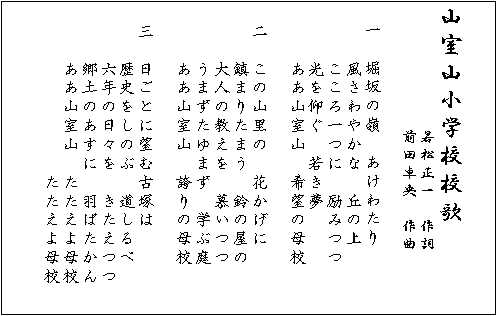 山室山小学校校歌
若松正一　作詞
前田卓央　作曲
一
堀坂の嶺　あけわたり
風さわやかな　丘の上
こころ一つに　励みつつ
光を仰ぐ　若き夢
ああ山室山　希望の母校
二
この山里の　花かげに
鎮まりたまう　鈴の屋の
大人の教えを　慕いつつ
うまずたゆまず　学ぶ庭
ああ山室山　誇りの母校
三
日ごとに望む古塚は
歴史をしのぶ　道しるべ
六年の日々を　きたえつつ
郷土のあすに　羽ばたかん
ああ山室山　たたえよ母校
たたえよ母校